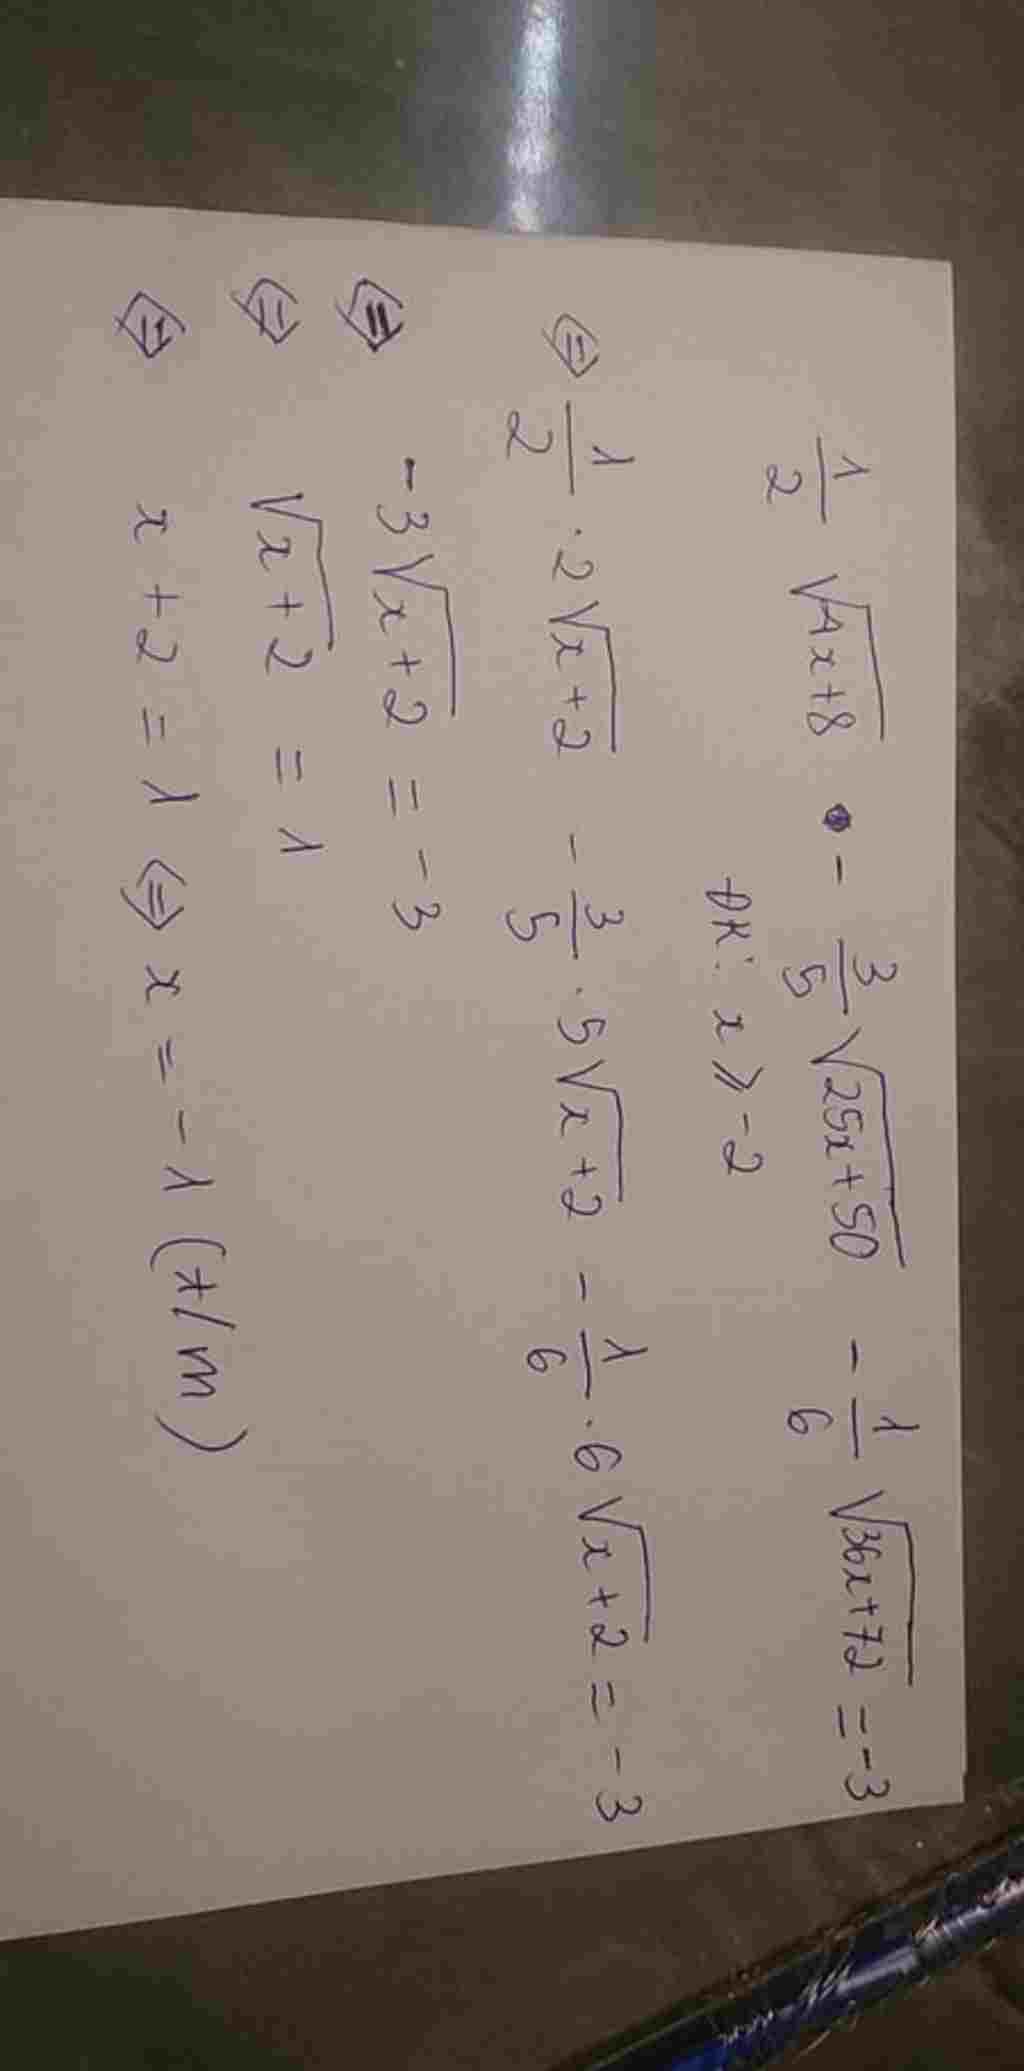 1/2 √(4x+8) - 3/5 √(25x+50) - 1/6 √(36x+72) = -3
ĐK: x ⩾ -2
⇔ 1/2 . 2√(x+2) - 3/5 . 5√(x+2) - 1/6 . 6√(x+2) = -3
⇔ -3√(x+2) = -3
⇔ √(x+2) = 1
⇔ x + 2 = 1 ⇔ x = -1 (t/m)